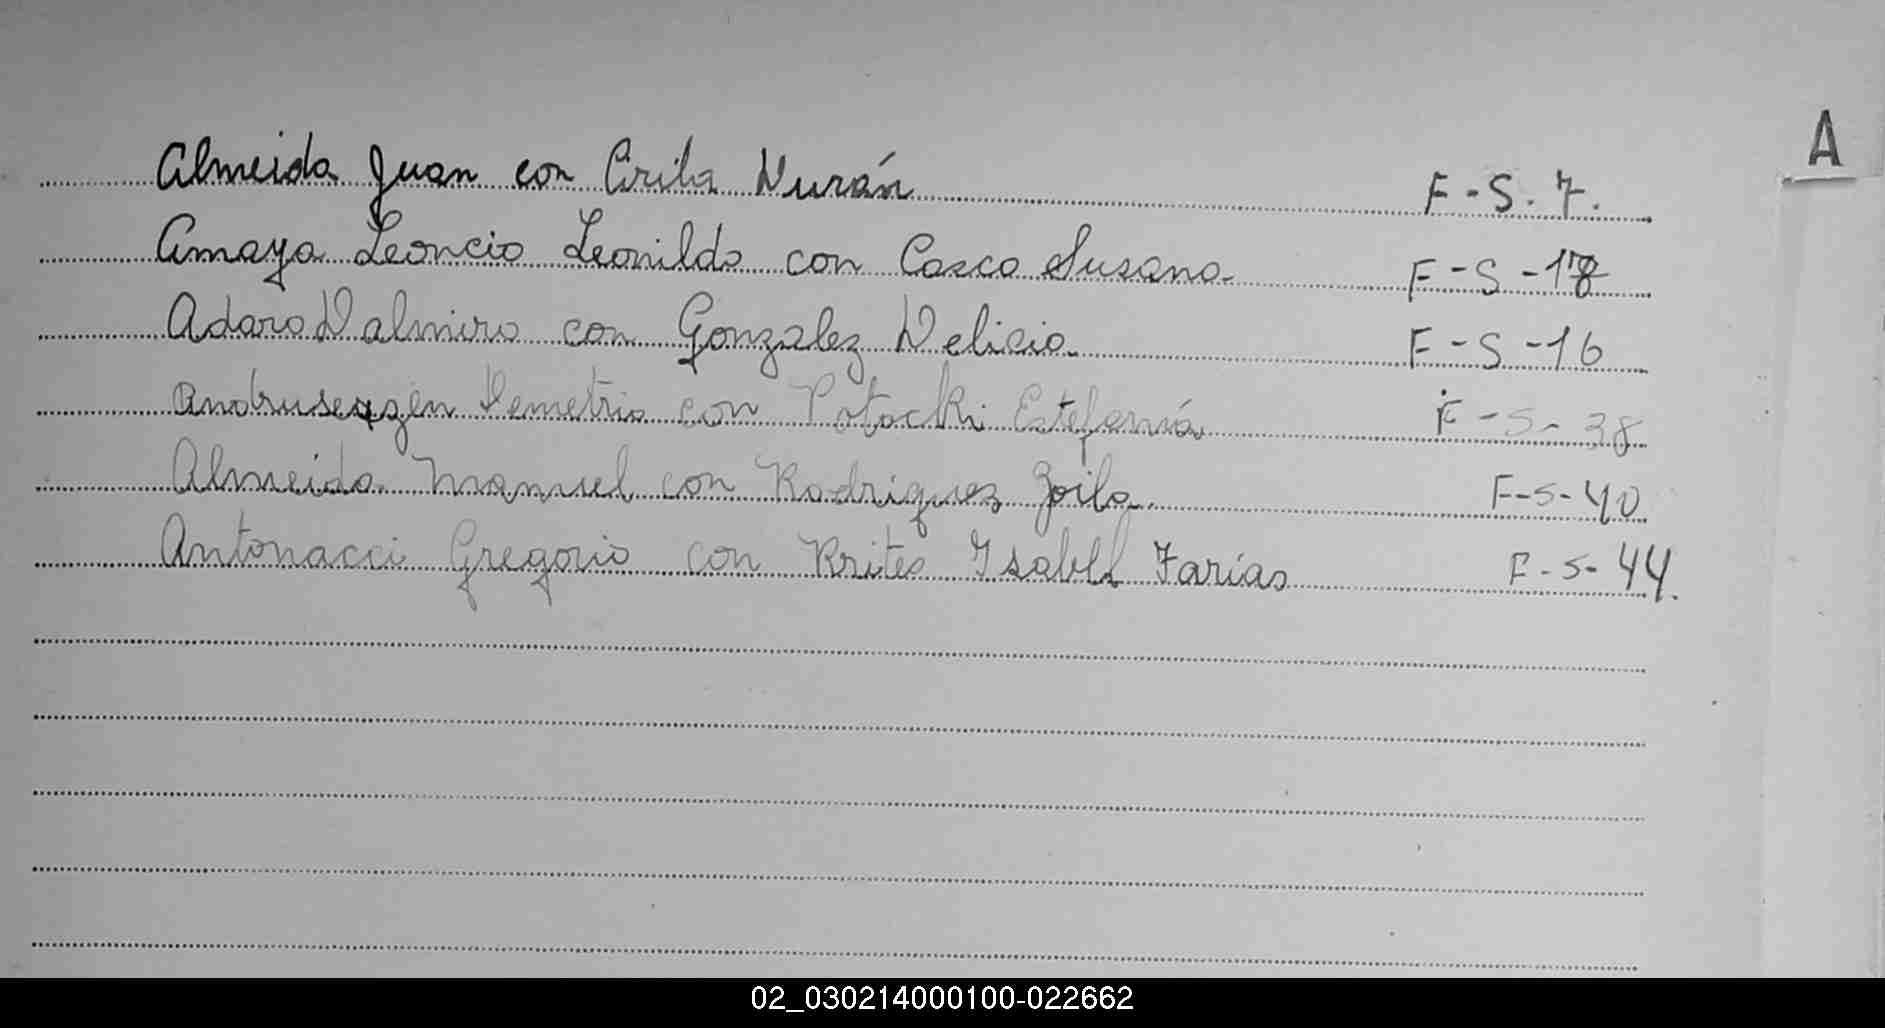 A
Almeida Juan con Cirila Durán F-S.7.
Amaya Leoncio Leonildo con Casco Susana F-S-
Adaro Dalmiro con Gonzalez Delicia F-S-16
Demetrio con Potocki Estefanía F-S-38
Almeida Manuel con Rodriguez Zoila. F-S-40
Antonacci Gregorio con Krites Ysabel Farías F-S-44.
02_030214000100-022662